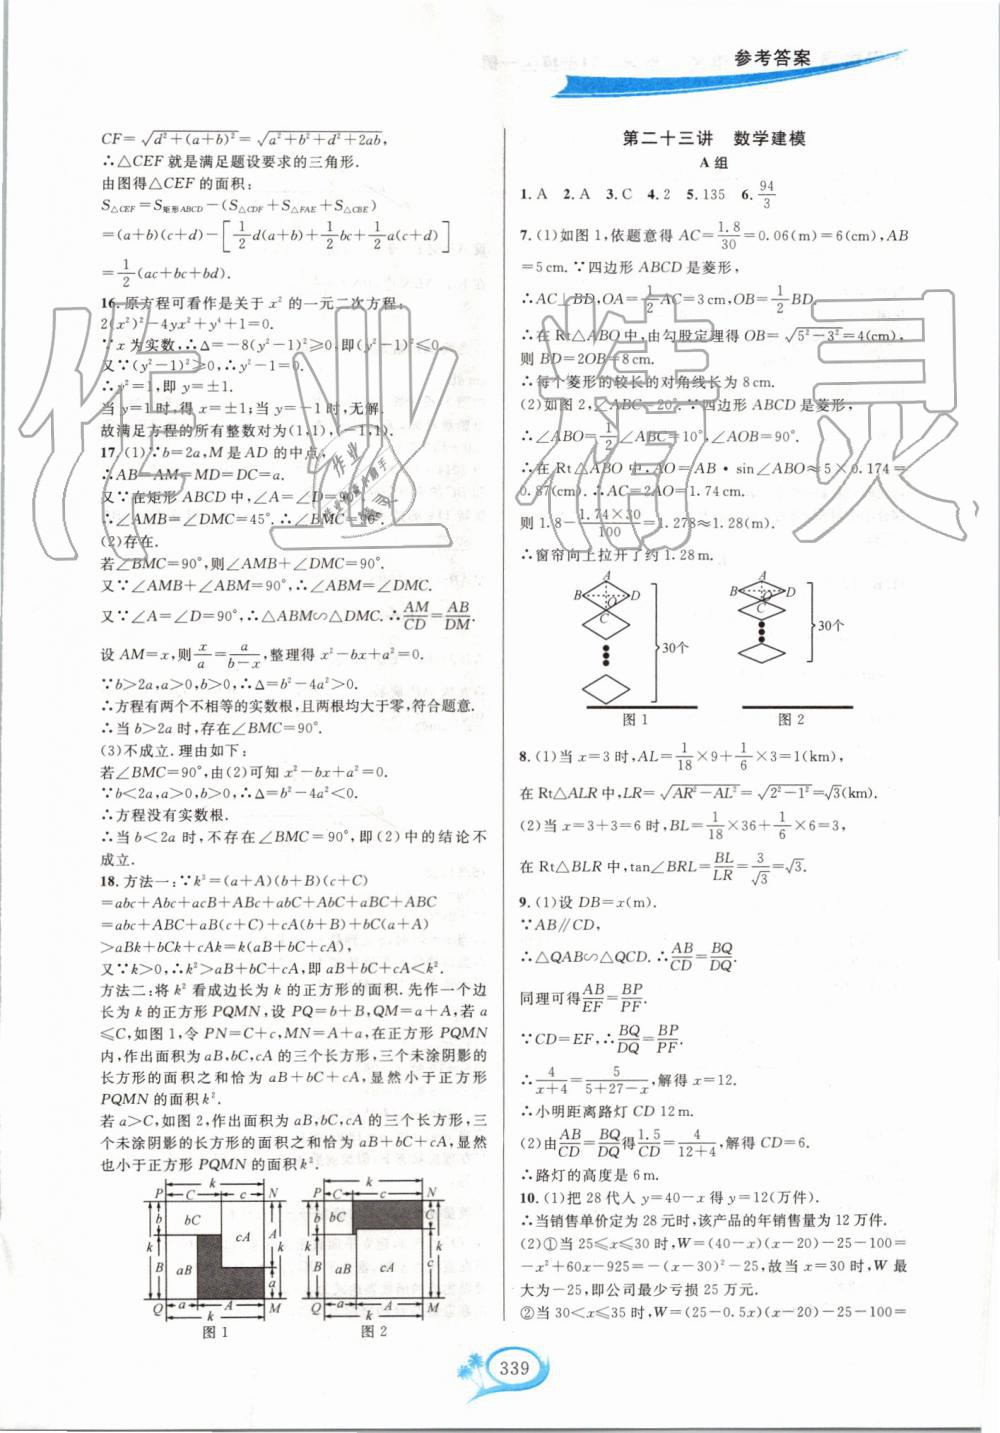 参考答案
CF=√(d²+(a+b)²)=√(a²+b²+d²+2ab),
∴△CEF 就是满足题设要求的三角形.
由图得△CEF 的面积:
S△CEF=S矩形ABCD-(S△CDF+S△FAE+S△CBE)
=(a+b)(c+d)-[1/2 d(a+b)+1/2 bc+1/2 a(c+d)]
=1/2(ac+bc+bd).
16. 原方程可看作是关于 x² 的一元二次方程:
2(x²)²-4yx²+y⁴+1=0.
∵x 为实数,∴Δ=-8(y²-1)²≥0,即(y²-1)²≤0.
又∵(y²-1)²≥0,∴y²-1=0.
∴y²=1,即 y=±1.
当 y=1时,得 x=±1;当 y=-1时,无解.
故满足方程的所有整数对为(1,1),(-1,1).
17. (1)∵b=2a,M 是 AD 的中点,
∴AB=AM=MD=DC=a.
又∵在矩形 ABCD 中,∠A=∠D=90°,
∴∠AMB=∠DMC=45°.∴∠BMC=90°.
(2)存在.
若∠BMC=90°,则∠AMB+∠DMC=90°.
又∵∠AMB+∠ABM=90°,∴∠ABM=∠DMC.
又∵∠A=∠D=90°,∴△ABM∽△DMC.∴AM/CD=AB/DM.
设 AM=x,则x/a=a/(b-x),整理得 x²-bx+a²=0.
∵b>2a,a>0,b>0,∴Δ=b²-4a²>0.
∴方程有两个不相等的实数根,且两根均大于零,符合题意.
∴当 b>2a 时,存在∠BMC=90°.
(3)不成立.理由如下:
若∠BMC=90°,由(2)可知 x²-bx+a²=0.
∵b<2a,a>0,b>0,∴Δ=b²-4a²<0.
∴方程没有实数根.
∴当 b<2a 时,不存在∠BMC=90°,即(2)中的结论不
成立.
18. 方法一:∵k³=(a+A)(b+B)(c+C)
=abc+Abc+acB+ABc+abC+AbC+aBC+ABC
=abc+ABC+aB(c+C)+cA(b+B)+bC(a+A)
>aBk+bCk+cAk=k(aB+bC+cA),
又∵k>0,∴k²>aB+bC+cA,即 aB+bC+cA<k².
方法二:将 k² 看成边长为 k 的正方形的面积.先作一个边
长为 k 的正方形 PQMN,设 PQ=b+B,QM=a+A,若 a
≤C,如图 1,令 PN=C+c,MN=A+a,在正方形 PQMN
内,作出面积为 aB,bC,cA 的三个长方形,三个未涂阴影的
长方形的面积之和恰为 aB+bC+cA,显然小于正方形
PQMN 的面积 k².
若 a>C,如图 2,作出面积为 aB,bC,cA 的三个长方形,三
个未涂阴影的长方形的面积之和恰为 aB+bC+cA,显然
也小于正方形 PQMN 的面积 k².
P k N
C c
b bC
cA A
k k
B aB
a
Q a A M
k
图 1
P k N
C c
b bC
C
k k
B aB cA
A
Q a A M
k
图 2
第二十三讲 数学建模
A 组
1. A 2. A 3. C 4. 2 5. 135 6. 94/3
7. (1)如图 1,依题意得 AC=1.8/30=0.06(m)=6(cm),AB
=5 cm.∵四边形 ABCD 是菱形,
∴AC⊥BD,OA=1/2 AC=3 cm,OB=1/2 BD.
∴在 Rt△ABO 中,由勾股定理得 OB=√(5²-3²)=4(cm).
则 BD=2OB=8 cm.
∴每个菱形的较长的对角线长为 8 cm.
(2)如图 2,∠ABC=20°.∵四边形 ABCD 是菱形,
∴∠ABO=1/2∠ABC=10°,∠AOB=90°.
∴在 Rt△ABO 中,AO=AB·sin∠ABO≈5×0.174=
0.87(cm).∴AC=2AO=1.74 cm.
则 1.8-1.74×30/100=1.278≈1.28(m).
∴窗帘向上拉开了约 1.28 m.
A
B O D
C
30个
图 1
A
B O D
C
30个
图 2
8. (1)当 x=3 时,AL=1/18×9+1/6×3=1(km),
在 Rt△ALR 中,LR=√(AR²-AL²)=√(2²-1²)=√3(km).
(2)当 x=3+3=6 时,BL=1/18×36+1/6×6=3,
在 Rt△BLR 中,tan∠BRL=BL/LR=3/√3=√3.
9. (1)设 DB=x(m).
∵AB∥CD,
∴△QAB∽△QCD.∴AB/CD=BQ/DQ.
同理可得AB/EF=BP/PF.
∵CD=EF,∴BQ/DQ=BP/PF.
∴4/(x+4)=5/(5+27-x),解得 x=12.
∴小明距离路灯 CD 12 m.
(2)由AB/CD=BQ/DQ得1.5/CD=4/(12+4),解得 CD=6.
∴路灯的高度是 6 m.
10. (1)把 28 代入 y=40-x 得 y=12(万件).
∴当销售单价定为 28 元时,该产品的年销售量为 12 万件.
(2)①当 25≤x≤30 时,W=(40-x)(x-20)-25-100=
-x²+60x-925=-(x-30)²-25,故当 x=30 时,W 最
大为-25,即公司最少亏损 25 万元.
②当 30<x≤35 时,W=(25-0.5x)(x-20)-25-100=
339
作业精灵